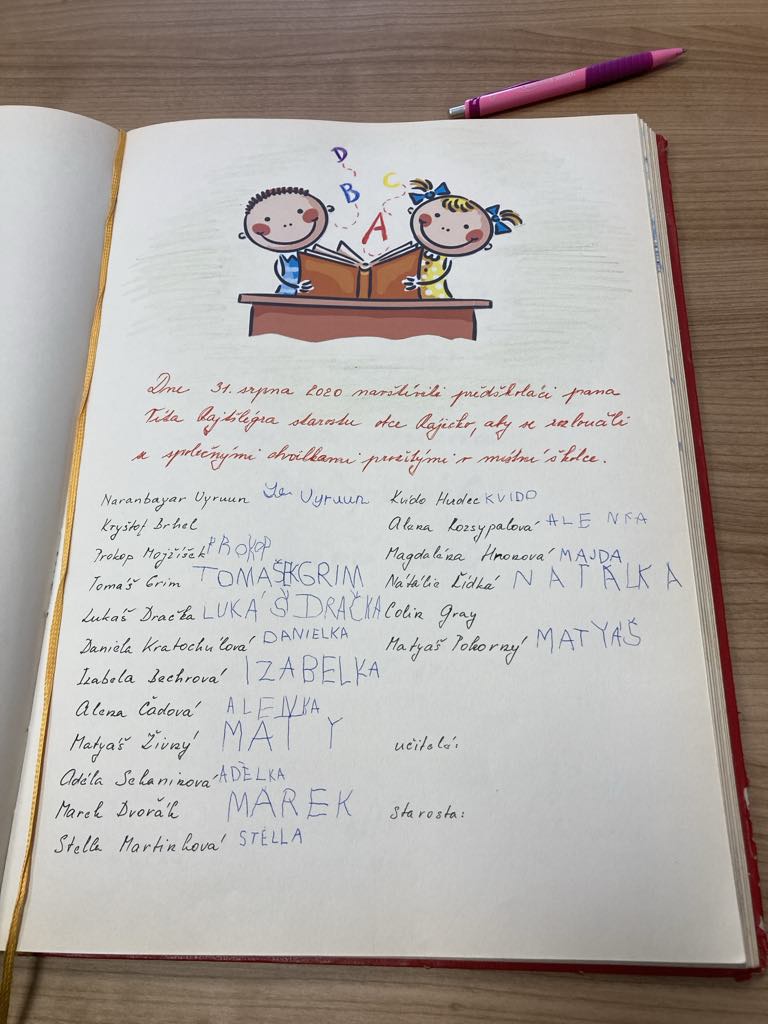 D
B
C
A
Dne 31. srpna 2020 navštívili předškoláci pana
Tita Rajtšlégra starostu obce Rajecko, aby se rozloučili
se společnými chvilkami prožitými v místní školce.
Naranbayar Uyruun Uyruun
Kryštof Brhel
Prokop Mojžíšek PROKOP
Tomáš Grim TOMAŠEK GRIM
Lukáš Dračka LUKÁŠ DRAČKA
Daniela Kratochvílová DANIELKA
Izabela Bachrová IZABELKA
Alena Čadová ALENKA
Matyáš Živný MATY
Adéla Schaninová ADÉLKA
Marek Dvořák MAREK
Stella Martinková STELLA
Kvido Hudec KVIDO
Alena Rozsypalová ALENKA
Magdaléna Hronová MAJDA
Natálie Židká NATÁLKA
Colin Gray
Matyáš Pokorný MATYÁŠ
učitelé:
starosta: